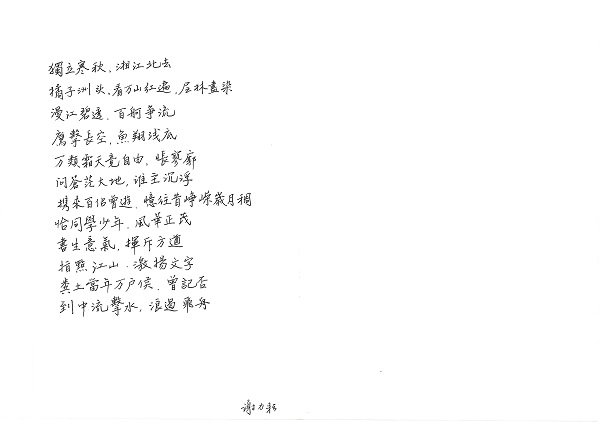 獨立寒秋,湘江北去
橘子洲头,看万山红遍,层林盡染
漫江碧透,百舸争流
鹰擊長空,魚翔浅底
万類霜天竞自由,悵寥廓
问蒼茫大地,谁主沉浮
携来百侣曾遊,憶往昔峥嵘歲月稠
恰同學少年,風華正茂
書生意氣,揮斥方遒
指點江山,激揚文字
粪土當年万户侯,曾記否
到中流擊水,浪遏飛舟
謝力